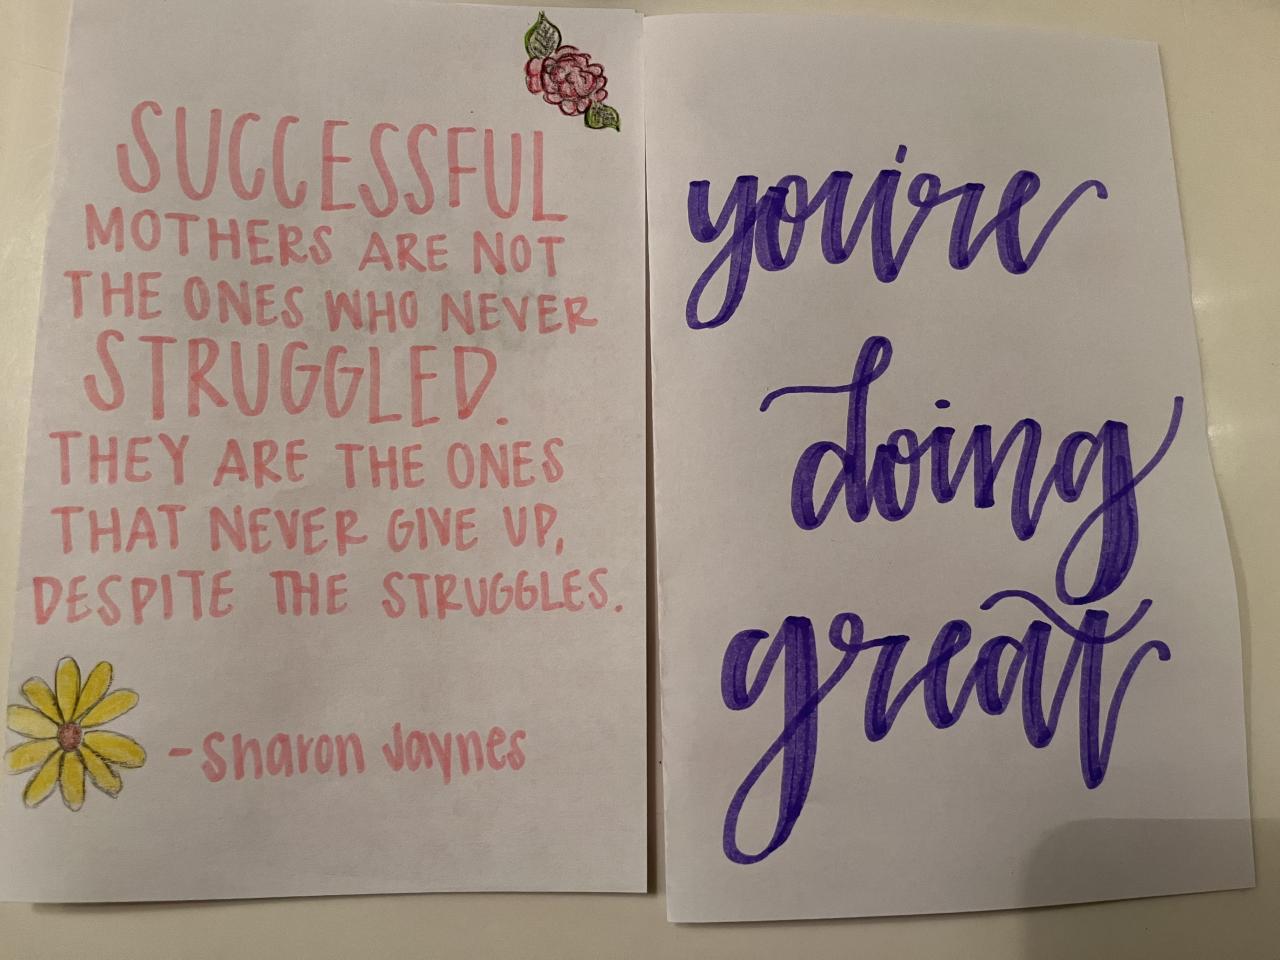 SUCCESSFUL
MOTHERS ARE NOT
THE ONES WHO NEVER
STRUGGLED.
THEY ARE THE ONES
THAT NEVER GIVE UP,
DESPITE THE STRUGGLES.
-Sharon Jaynes
you're
doing
great